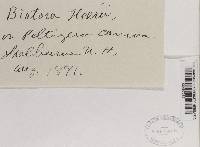 Biatora Heerii,
on Peltigera canina.
Shelburne N. H.
Aug. 1891.